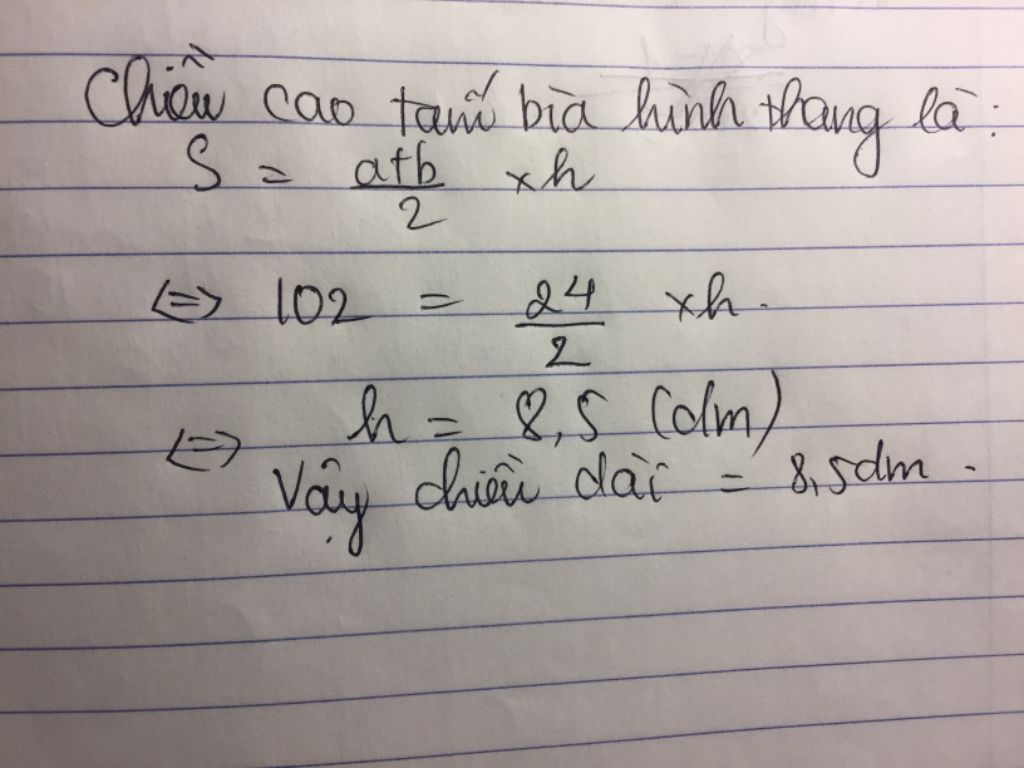 Chiều cao tấm bìa hình thang là:
S = a+b/2 × h
<=> 102 = 24/2 × h.
<=> h = 8,5 (dm)
Vậy chiều dài = 8,5dm.